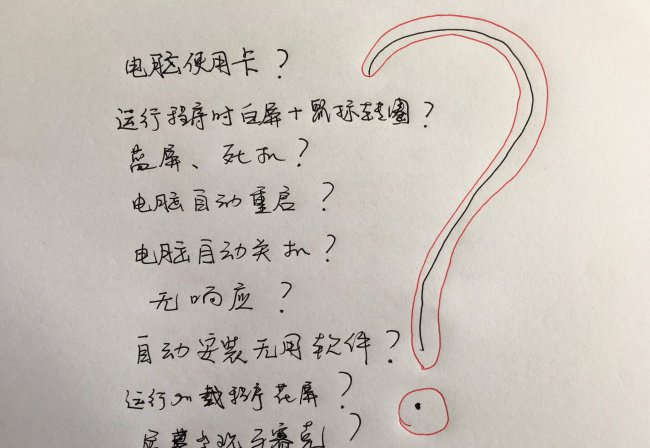 电脑使用卡？
运行程序时白屏+鼠标转圈？
蓝屏、死机？
电脑自动重启？
电脑自动关机？
无响应？
自动安装无用软件？
运行加载程序花屏？
屏幕出现马赛克？